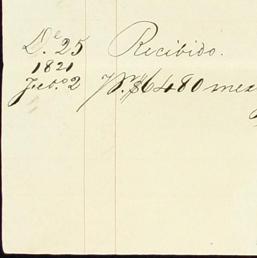 D.e 25 Recibido.
1821
Feb.o 2 Pr. $6480 mex